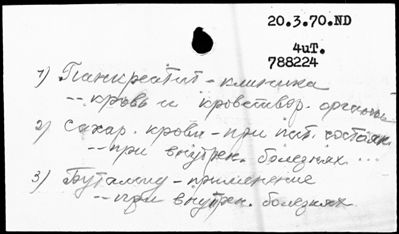 20.3.70.ND
4чт.
788224
1) Панкреатит - клиника
-- кровь и кроветвор. органы
2) Сахар. крови - при пат. состоян.
-- при внутрен. болезнях ...
3) Бутамид - применение
-- при внутрен. болезнях